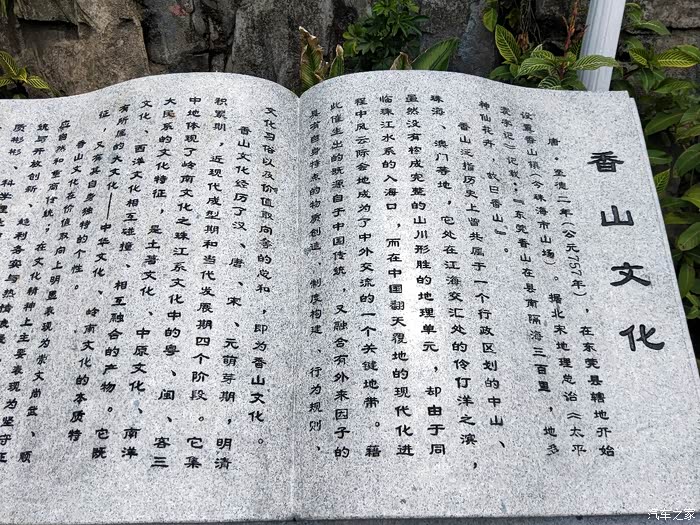 香山文化
唐·至德二年(公元757年),在东莞县辖地开始
设置香山镇(今珠海市山场)。据北宋地理总诒《太平
寰宇记》记载:『东莞香山在县南隔海三百里,地多
神仙花卉,故曰香山』。
香山泛指历史上曾共属于一个行政区划的中山、
珠海、澳门等地,它处在江海交汇处的伶仃洋之滨,
虽然没有构成完整的山川形胜的地理单元,却由于同
临珠江水系的入海口,而在中国翻天覆地的现代化进
程中风云际会地成为了中外交流的一个关键地带。藉
此催生出的既源自于中国传统,又融合有外来因子的
具有自身特点的物质创造、制度构建、行为规则、
文化习俗以及价值取向等的总和,即为香山文化。
香山文化经历了汉、唐、宋、元萌芽期,明清
积累期,近现代成型期和当代发展期四个阶段。它集
中地体现了岭南文化之珠江系文化中的粤、闽、客三
大民系的文化特征,是土著文化、中原文化、南洋
文化、西洋文化相互碰撞、相互融合的产物。它既
有所属的大文化——中华文化、岭南文化的本质特
征,又有其自身独特的个性。
香山文化在价值取向上明显表现为崇文尚武、顺
应自然和重商传统;在文化精神上主要表现为坚守正
统与开放创新、趋利务实与热情
质彬彬、科学理
汽车之家